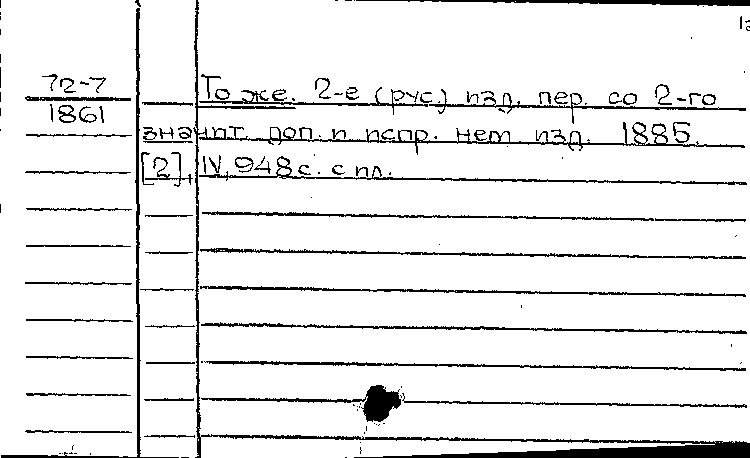 72-7
1861
То же. 2-е (рус) изд. пер. со 2-го
значит. доп. и испр. нем изд. 1885.
[2], IV, 948 с. с пл.